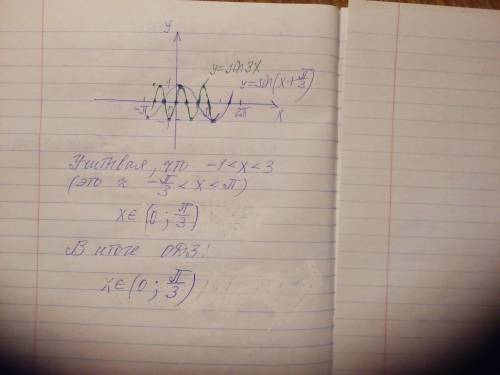 y
y=sin3x
y=sin(x+π/3)
1
-π
2π
x
Учитывая, что -1<x<3
(это ≈ -π/3<x<π)
x∈(0; π/3)
В итоге ОДЗ:
x∈(0; π/3)